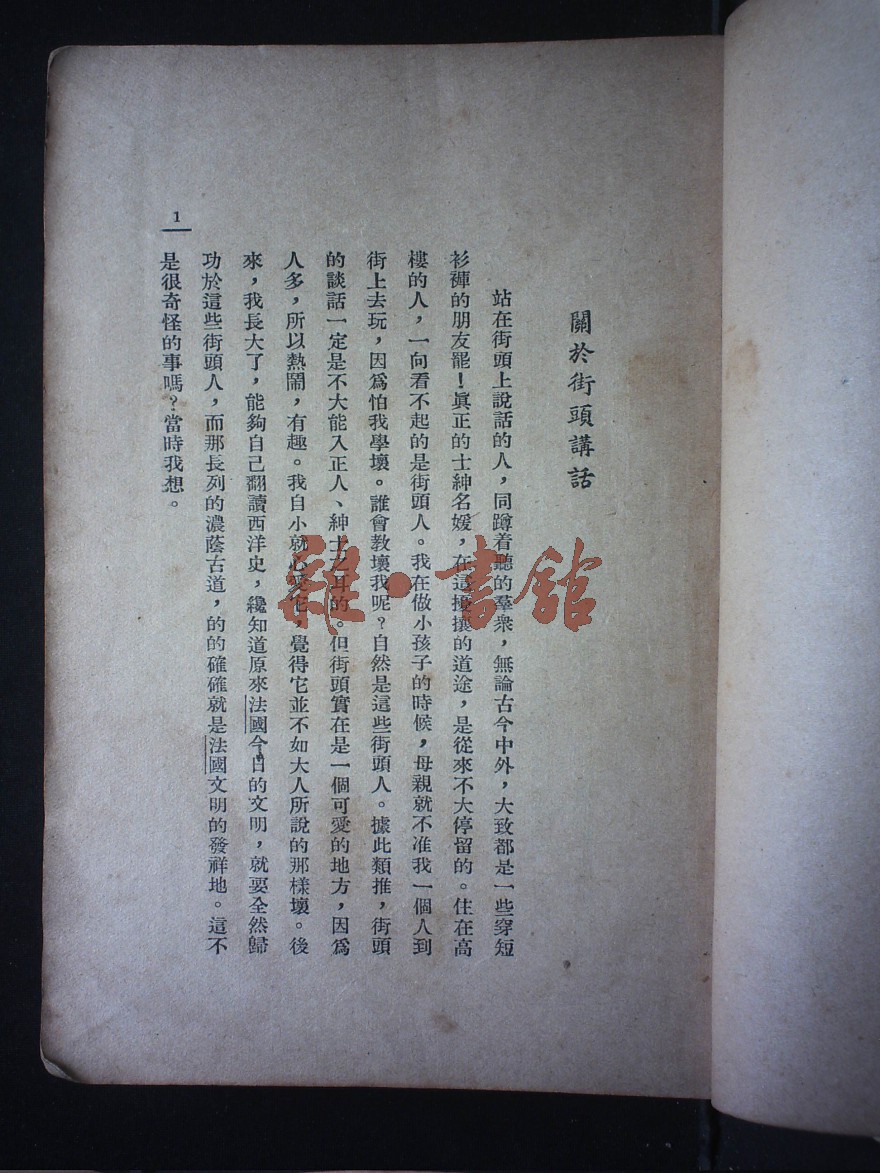 關於街頭講話
站在街頭上說話的人，同蹲着聽的羣衆，無論古今中外，大致都是一些穿短
衫褲的朋友罷！眞正的士紳名媛，在這擾攘的道途，是從來不大停留的。住在高
樓的人，一向看不起的是街頭人。我在做小孩子的時候，母親就不准我一個人到
街上去玩，因爲怕我學壞。誰會教壞我呢？自然是這些街頭人。據此類推，街頭
的談話一定是不大能入正人、紳士之耳的。但街頭實在是一個可愛的地方，因爲
人多，所以熱鬧，有趣。我自小就心愛它，覺得它並不如大人所說的那樣壞。後
來，我長大了，能夠自己翻讀西洋史，纔知道原來法國今日的文明，就要全然歸
功於這些街頭人，而那長列的濃蔭古道，的的確確就是法國文明的發祥地。這不
是很奇怪的事嗎？當時我想。
1
雜·書館